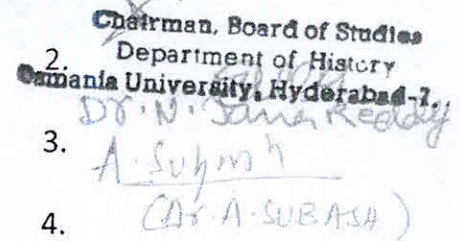 Chairman, Board of Studies
2. Department of History
Osmania University, Hyderabad-7.
Dr. N. Reddy
3. A. Subash
4. (Dr. A. SUBASH)